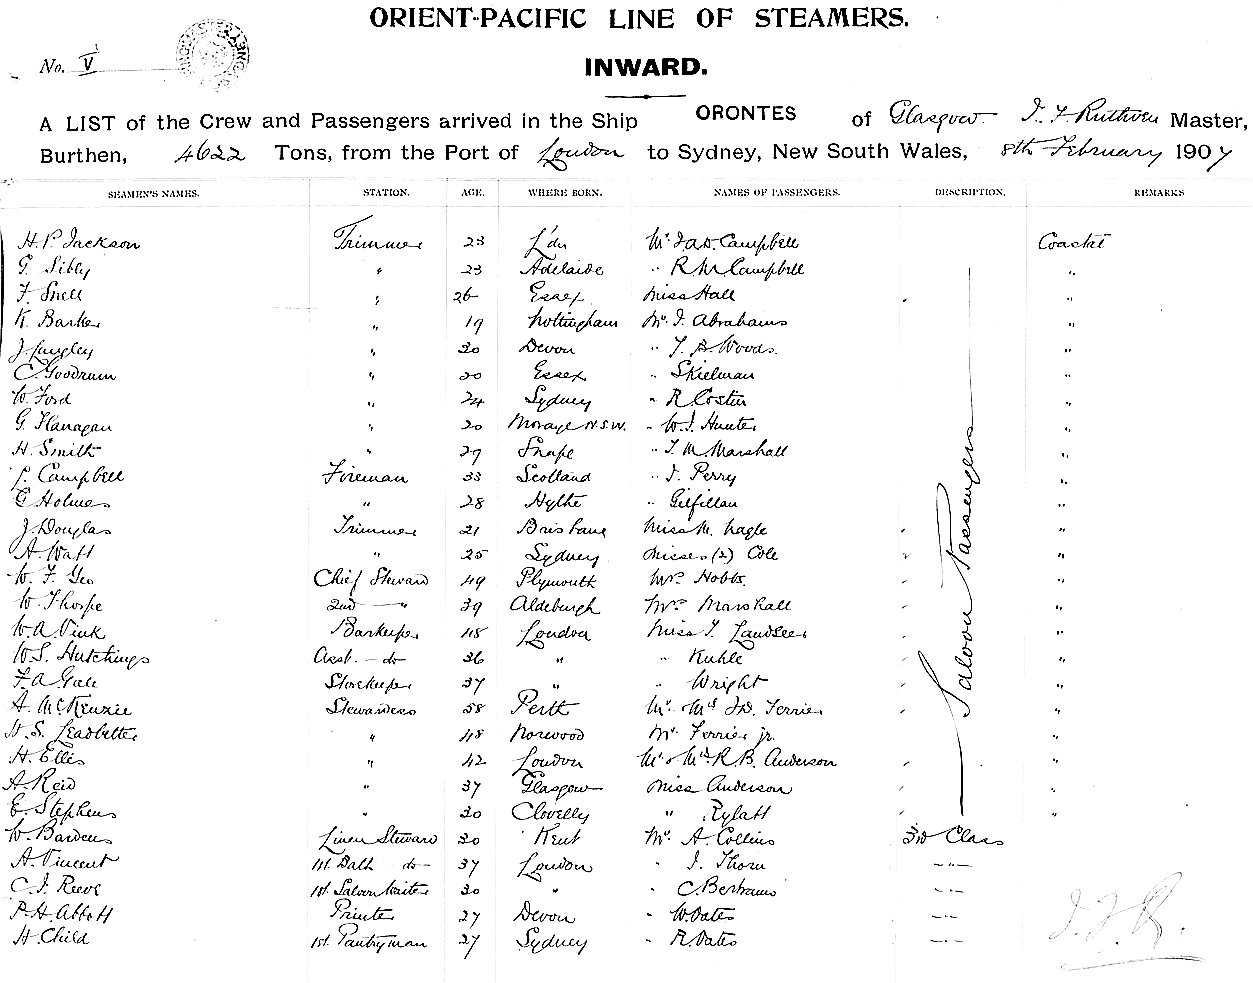 ORIENT-PACIFIC LINE OF STEAMERS.
No. V
INWARD.
A LIST of the Crew and Passengers arrived in the Ship ORONTES of Glasgow J. F. Ruthven Master,
Burthen, 4622 Tons, from the Port of London to Sydney, New South Wales, 8th February 1907
SEAMEN'S NAMES. STATION. AGE. WHERE BORN. NAMES OF PASSENGERS. DESCRIPTION. REMARKS
H. P. Jackson Trimmer 23 L'dn Mr. Jas. Campbell Coastal
G. Sibly " 23 Adelaide " R. M. Campbell "
F. Snell " 26 Essex Miss Hall "
K. Barker " 19 Nottingham Mr. J. Abrahams "
J Langley " 30 Devon " Woods. "
C Goodrum " 20 Essex " Skielman "
W. Ford " 24 Sydney " R. Costin "
G. Flanagan " 20 N.S.W. " W. J. Hunter "
H. Smith " 29 Snape " J. M. Marshall "
Campbell Fireman 33 Scotland " J. Perry "
G Holmes " 28 Hythe " Gilfillan "
J. Douglas Trimmer 21 Brisbane Miss M. Nagle "
A. Watt " 25 Sydney Misses (2) Cole "
W. F. Geo Chief Steward 49 Plymouth Mrs. Hobbs "
W. Thorpe 2nd " 39 Aldeburgh Mrs. Marshall "
W. A. Vink Barkeeper 48 London Miss Landseer "
W. S. Hutchings Asst. - do - 36 " " Kuhle "
F. A. Gale Storekeeper 37 " " Wright "
A. McKenzie Stewardess 58 Perth Mr. & Mrs Jas. Ferrier "
H. S. Leadbetter " 48 Norwood Mr. Ferrier jr. "
H. Ellis " 42 London Mr. & Mrs R. B. Anderson "
A. Reid " 37 Glasgow Miss Anderson "
E. Stephens " 30 Clovelly " Rylatt "
Saloon Passengers
W. Bardens Linen Steward 30 Kent Mr. A. Collins 3rd Class
A. Vincent 1st. Bath - do - 37 London " J. Thorn - " -
C. J. Reeve 1st. Saloon Waiter 30 " " C. Bertrams - " -
P. H. Abbott Printer 27 Devon " W. Oates - " -
H. Child 1st. Pantryman 27 Sydney " R. Oates - " -
J. F. R.